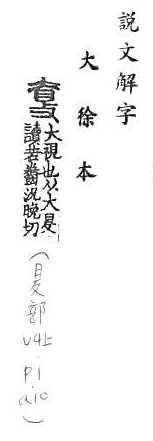 說文解字
大徐本
大視也从大𥄎
讀若齤況晚切
(𥄎部 v4上.p1 a10)